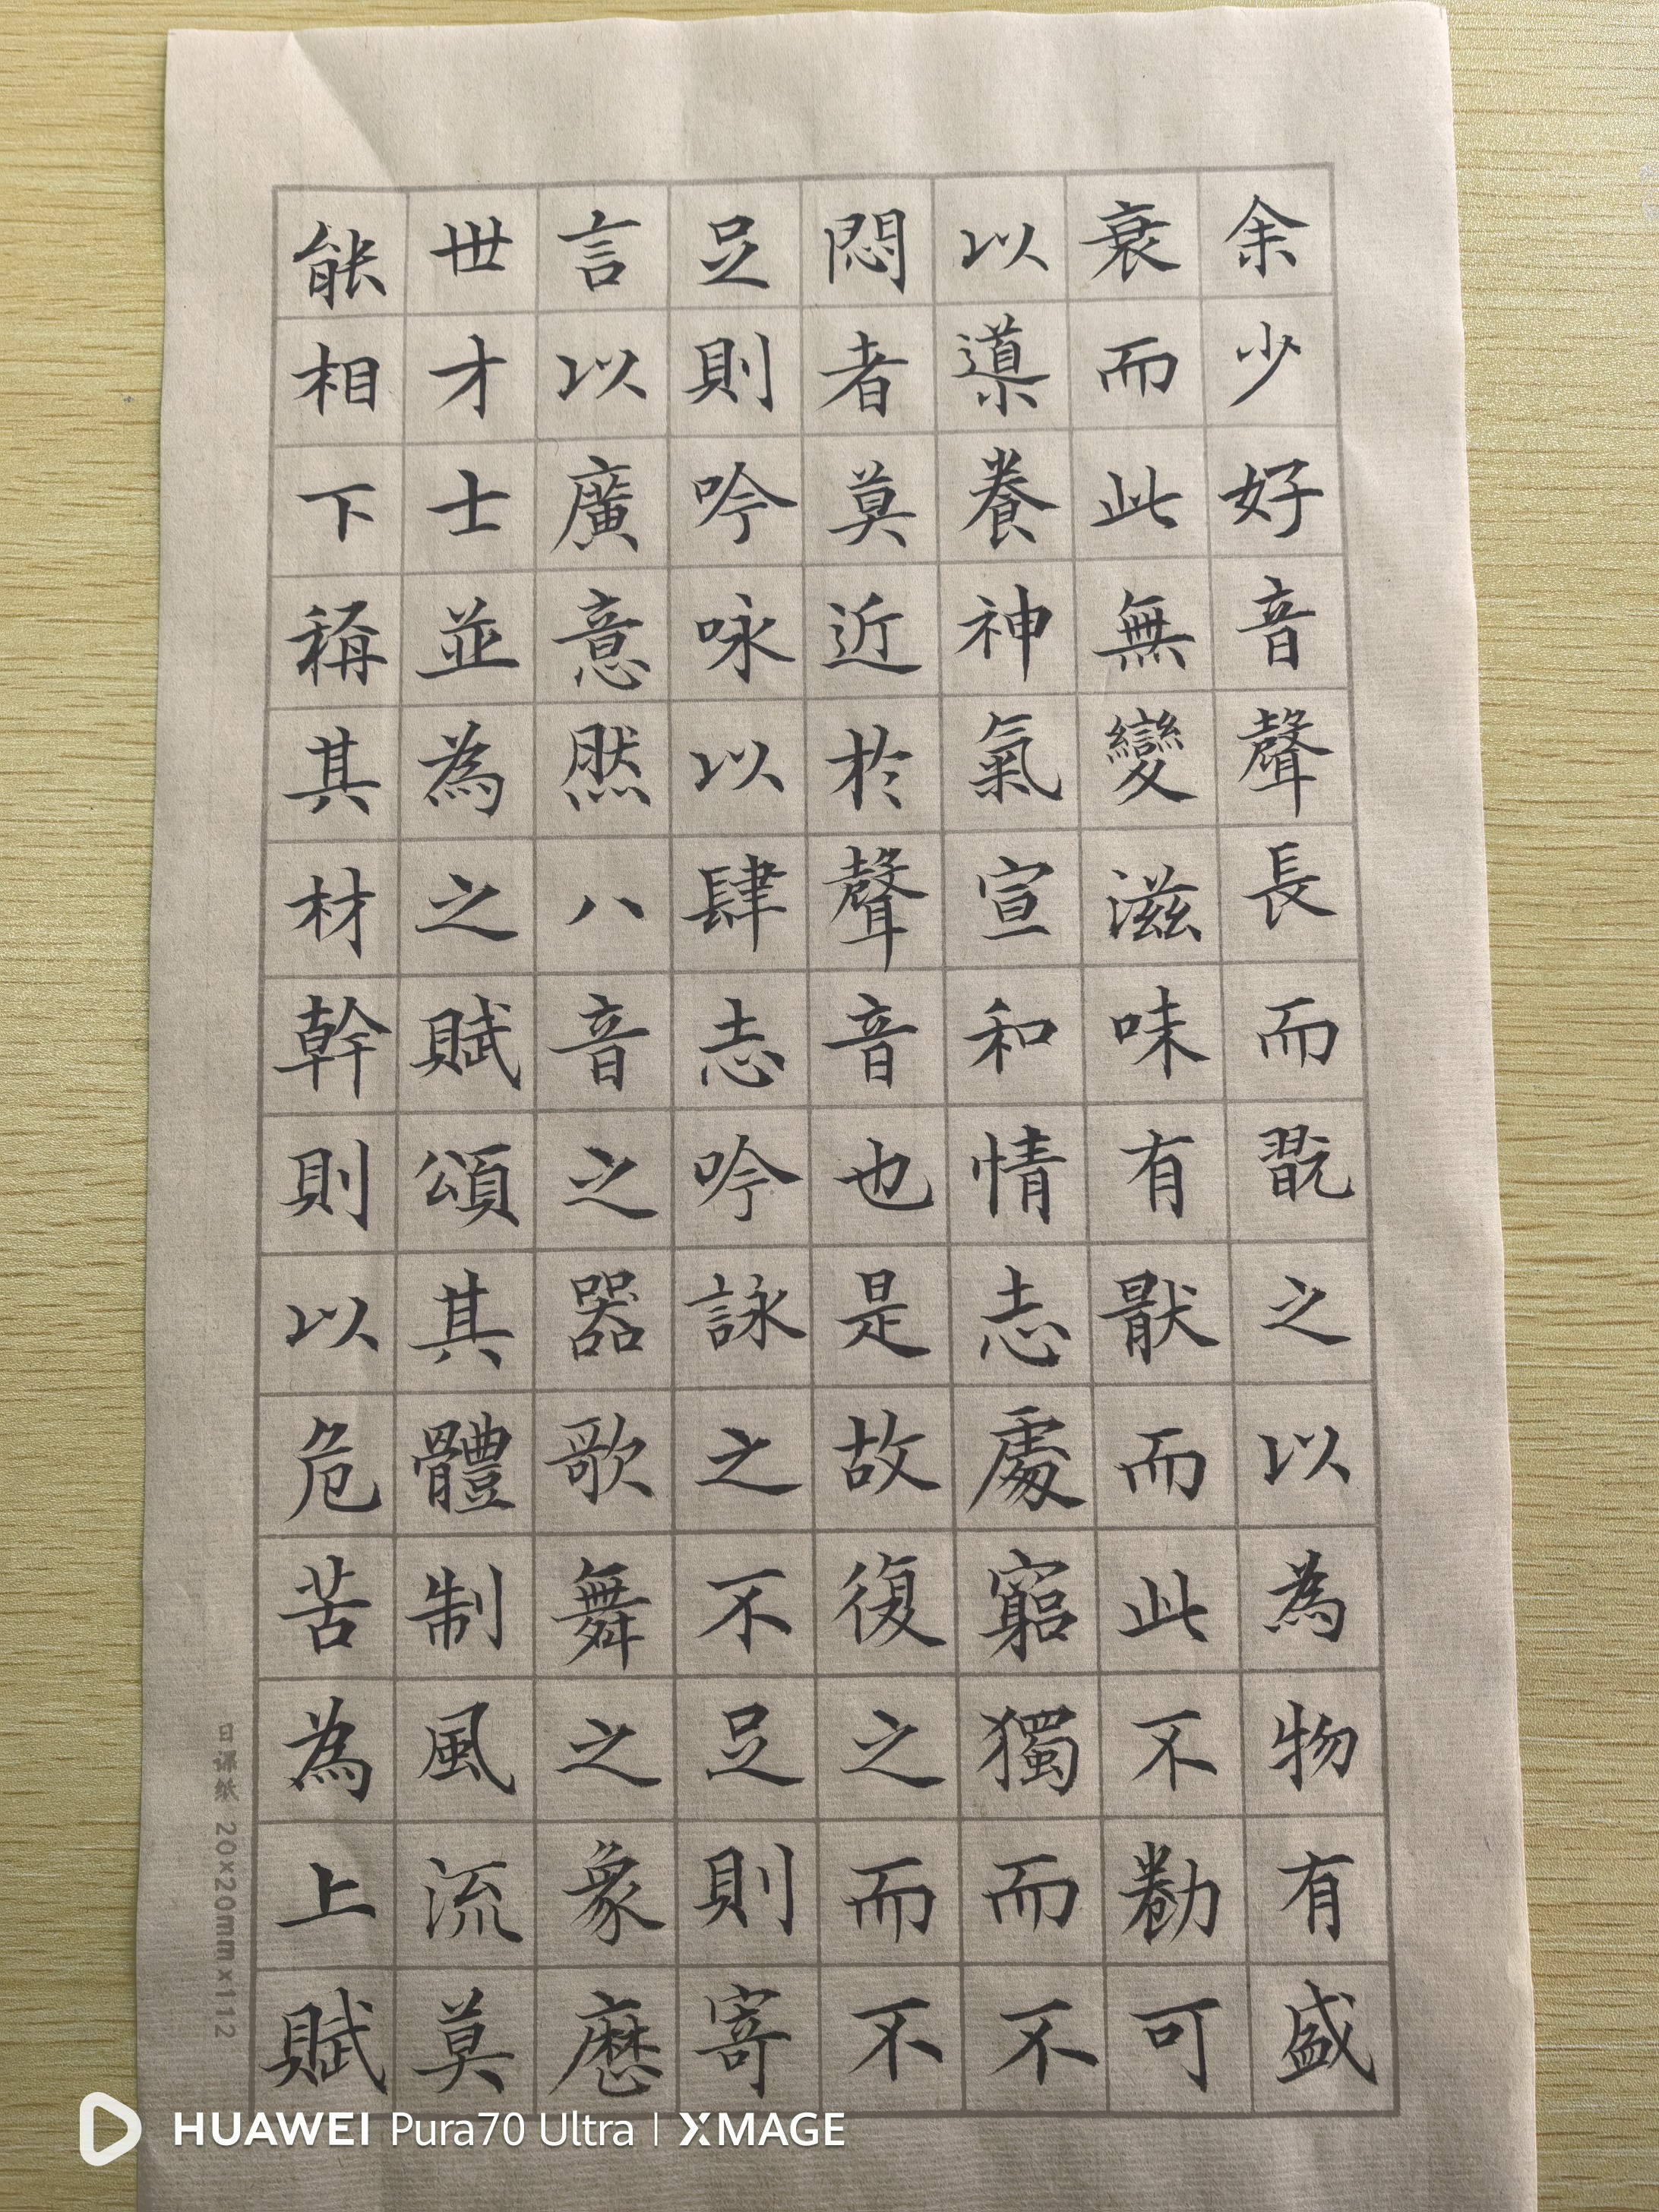 余少好音聲長而翫之以為物有盛
衰而此無變滋味有猒而此不勌可
以導養神氣宣和情志處窮獨而不
悶者莫近於聲音也是故復之而不
足則吟咏以肆志吟詠之不足則寄
言以廣意然八音之器歌舞之象歷
世才士並為之賦頌其體制風流莫
能相下稱其材幹則以危苦為上賦
日课纸 20x20mmx112
HUAWEI Pura70 Ultra | XMAGE